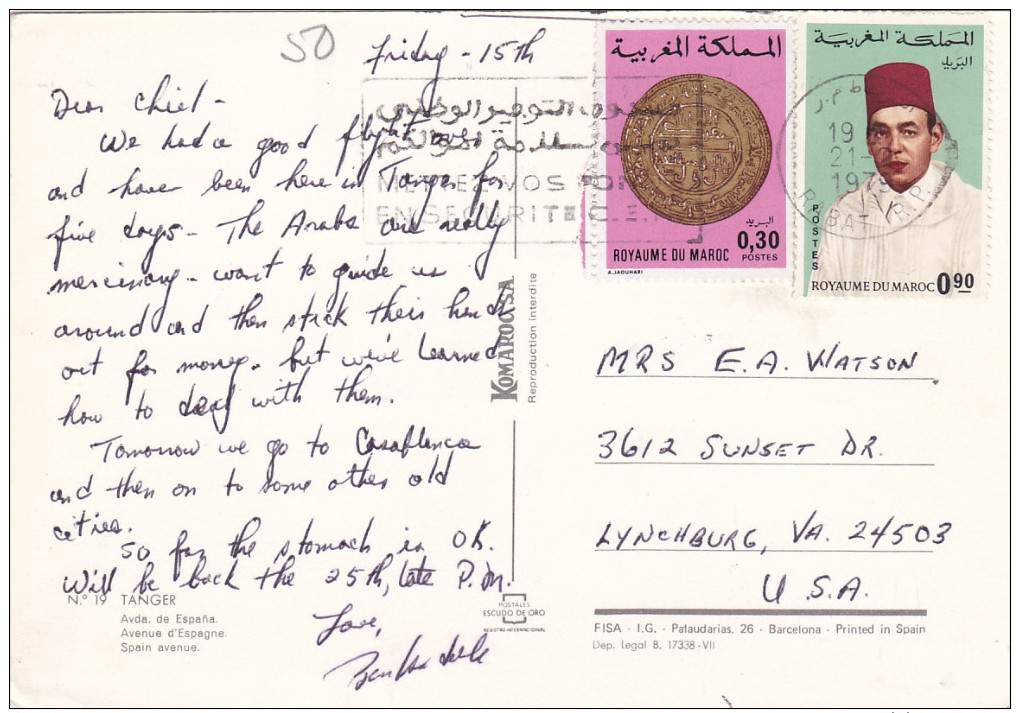 50
Friday - 15th
Dear Chief -
We had a good flight over
and have been here in Tanger for
five days. The Arabs are really
mercinary - want to guide us
around and then stick their hands
out for money. but we've learned
how to deal with them.
Tomorrow we go to Casablanca
and then on to some other old
cities.
So far the stomach is OK.
Will be back the 25th, late P.M.
Love,
N.º 19 TANGER
Avda. de España.
Avenue d'Espagne.
Spain avenue.
KOMAROC S.A
Reproduction interdite
POSTALES
ESCUDO DE ORO
REGISTRO INTERNACIONAL
METTEZ VOS FON
EN SECURITE C.E.
المملكة المغربية
البريد
0,30
ROYAUME DU MAROC POSTES
A.JAOUHARI
المملكة المغربية
البريد
POSTES
ROYAUME DU MAROC 0,90
19
21-
197
RABAT R.P.
MRS E. A. WATSON
3612 SUNSET DR.
LYNCHBURG, VA. 24503
U.S.A.
FISA - I.G. - Palaudarias, 26 - Barcelona - Printed in Spain
Dep. Legal B. 17338-VII